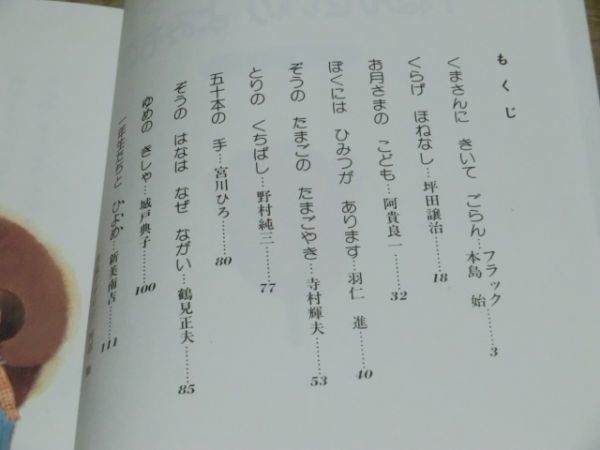 もくじ
くまさんに きいて ごらん…フラック 本島 始……3
くらげ ほねなし…坪田譲治……18
お月さまの こども…阿貴良一……32
ぼくには ひみつが あります…羽仁 進……40
ぞうの たまごの たまごやき…寺村輝夫……53
とりの くちばし…野村純三……77
五十本の 手…宮川ひろ……80
ぞうの はなは なぜ ながい…鶴見正夫……85
ゆめの きしゃ…城戸典子……100
一年生たちと ひよめ…新美南吉……111